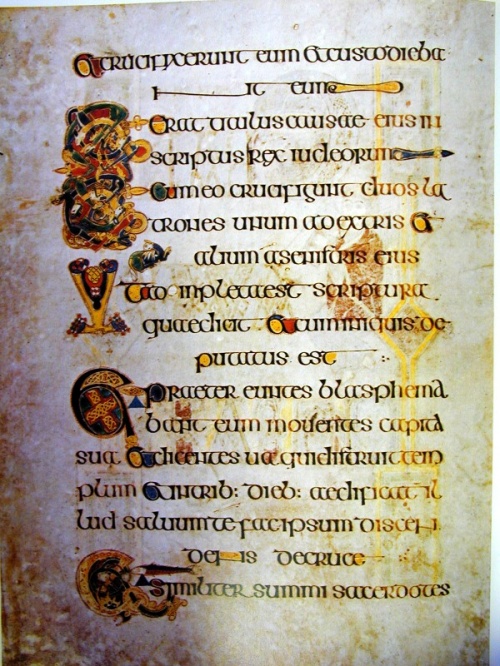 et crucifixerunt eum et custodieba
nt eum
Et erat titulus causae eius in
scriptus rex iudeorum
Et cum eo crucifigunt duos la
trones unum a dextris et
alium a senistris eius
Vt adinpleta est scriptura
quae dicit et cum iniquis de
putatus est
Et praeter euntes blasphema
bant eum mouentes capita
sua et dicentes ua qui distruit tem
plum et in trib: dieb: aedificat il
lud saluum te fac ipsum discen
dens de cruce
Et similiter summi sacerdotes